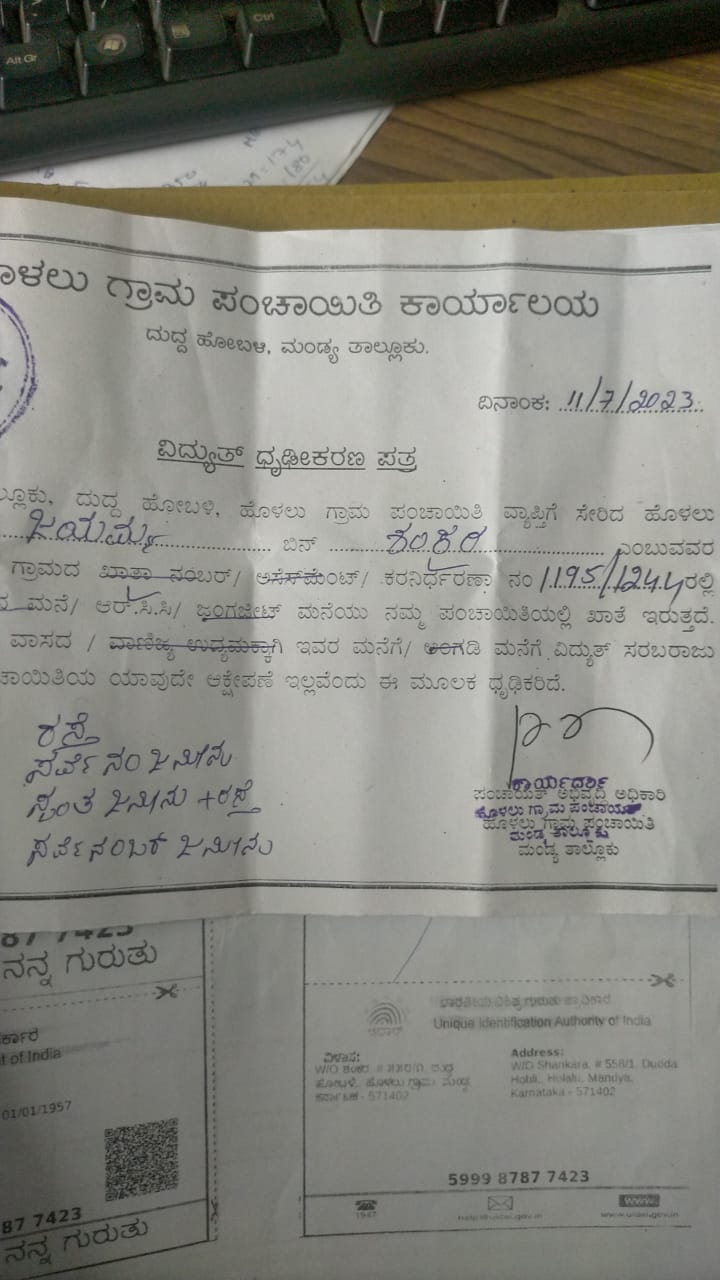 Alt Gr
Ctrl
ಹೊಳಲು ಗ್ರಾಮ ಪಂಚಾಯಿತಿ ಕಾರ್ಯಾಲಯ
ದುದ್ದ ಹೋಬಳಿ, ಮಂಡ್ಯ ತಾಲ್ಲೂಕು.
ದಿನಾಂಕ: 11/7/2023
ವಿದ್ಯುತ್ ಧೃಢೀಕರಣ ಪತ್ರ
ಲ್ಲೂಕು, ದುದ್ದ ಹೋಬಳಿ, ಹೊಳಲು ಗ್ರಾಮ ಪಂಚಾಯಿತಿ ವ್ಯಾಪ್ತಿಗೆ ಸೇರಿದ ಹೊಳಲು
ಜಯಮ್ಮ ಬಿನ್ ಶಂಕರ ಎಂಬುವವರ
ಗ್ರಾಮದ ಖಾತಾ ನಂಬರ್/ ಅಸೆಸ್‌ಮೆಂಟ್/ ಕರನಿರ್ಧರಣಾ ನಂ 1195/1244 ರಲ್ಲಿ
ಮನೆ/ ಆರ್.ಸಿ.ಸಿ/ ಜಂಗಜೀಟ್ ಮನೆಯು ನಮ್ಮ ಪಂಚಾಯಿತಿಯಲ್ಲಿ ಖಾತೆ ಇರುತ್ತದೆ.
ವಾಸದ / ವಾಣಿಜ್ಯ ಉದ್ಯಮಕ್ಕಾಗಿ ಇವರ ಮನೆಗೆ/ ಅಂಗಡಿ ಮನೆಗೆ ವಿದ್ಯುತ್ ಸರಬರಾಜು
ಚಾಯಿತಿಯ ಯಾವುದೇ ಆಕ್ಷೇಪಣೆ ಇಲ್ಲವೆಂದು ಈ ಮೂಲಕ ಧೃಢಿಕರಿದೆ.
ರಸ್ತೆ
ಸರ್ವೆ ನಂ ಜಮೀನು
ಸ್ವಂತ ಜಮೀನು + ರಸ್ತೆ
ಸರ್ವೆ ನಂಬರ್ ಜಮೀನು
ಕಾರ್ಯದರ್ಶಿ
ಪಂಚಾಯತ್ ಅಭಿವೃದ್ಧಿ ಅಧಿಕಾರಿ
ಹೊಳಲು ಗ್ರಾಮ ಪಂಚಾಯತಿ
ಹೊಳಲು ಗ್ರಾಮ ಪಂಚಾಯಿತಿ
ಮಂಡ್ಯ ತಾಲ್ಲೂಕು
ಮಂಡ್ಯ ತಾಲ್ಲೂಕು
87 7423
ನನ್ನ ಗುರುತು
ರ್ಕಾರ
t of India
01/01/1957
87 7423
ನನ್ನ ಗುರುತು
Unique Identification Authority of India
ವಿಳಾಸ:
ಹೋಬಳಿ, ಹೊಳಲು ಗ್ರಾಮ ಮಂಡ್ಯ
ಕರ್ನಾಟಕ - 571402
Address:
W/O Shankara, # 558/1, Dudda
Hobli, Holalu, Mandya,
Karnataka - 571402
5999 8787 7423
1947
help@uidai.gov.in
www
www.uidai.gov.in